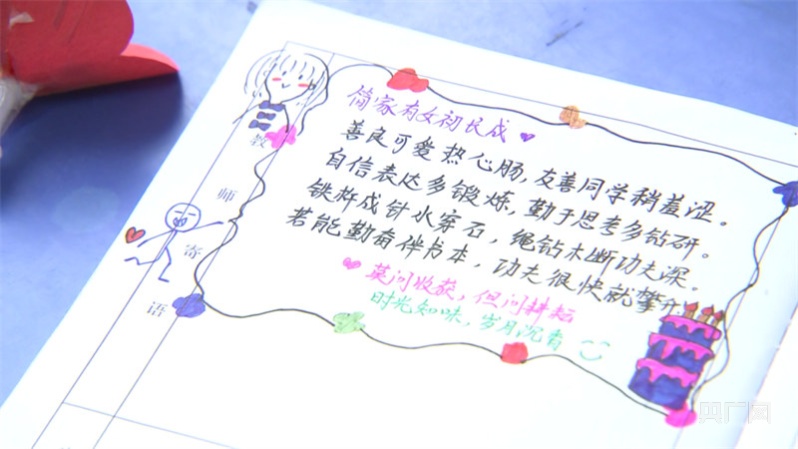 教师寄语
简家有女初长成
善良可爱热心肠,友善同学稍羞涩。
自信表达多锻炼,勤于思考多钻研。
铁杵成针水穿石,绳钻木断功夫深。
若能勤奋伴书本,功夫很快就攀升
莫问收获,但问耕耘
时光知味,岁月沉香
央广网